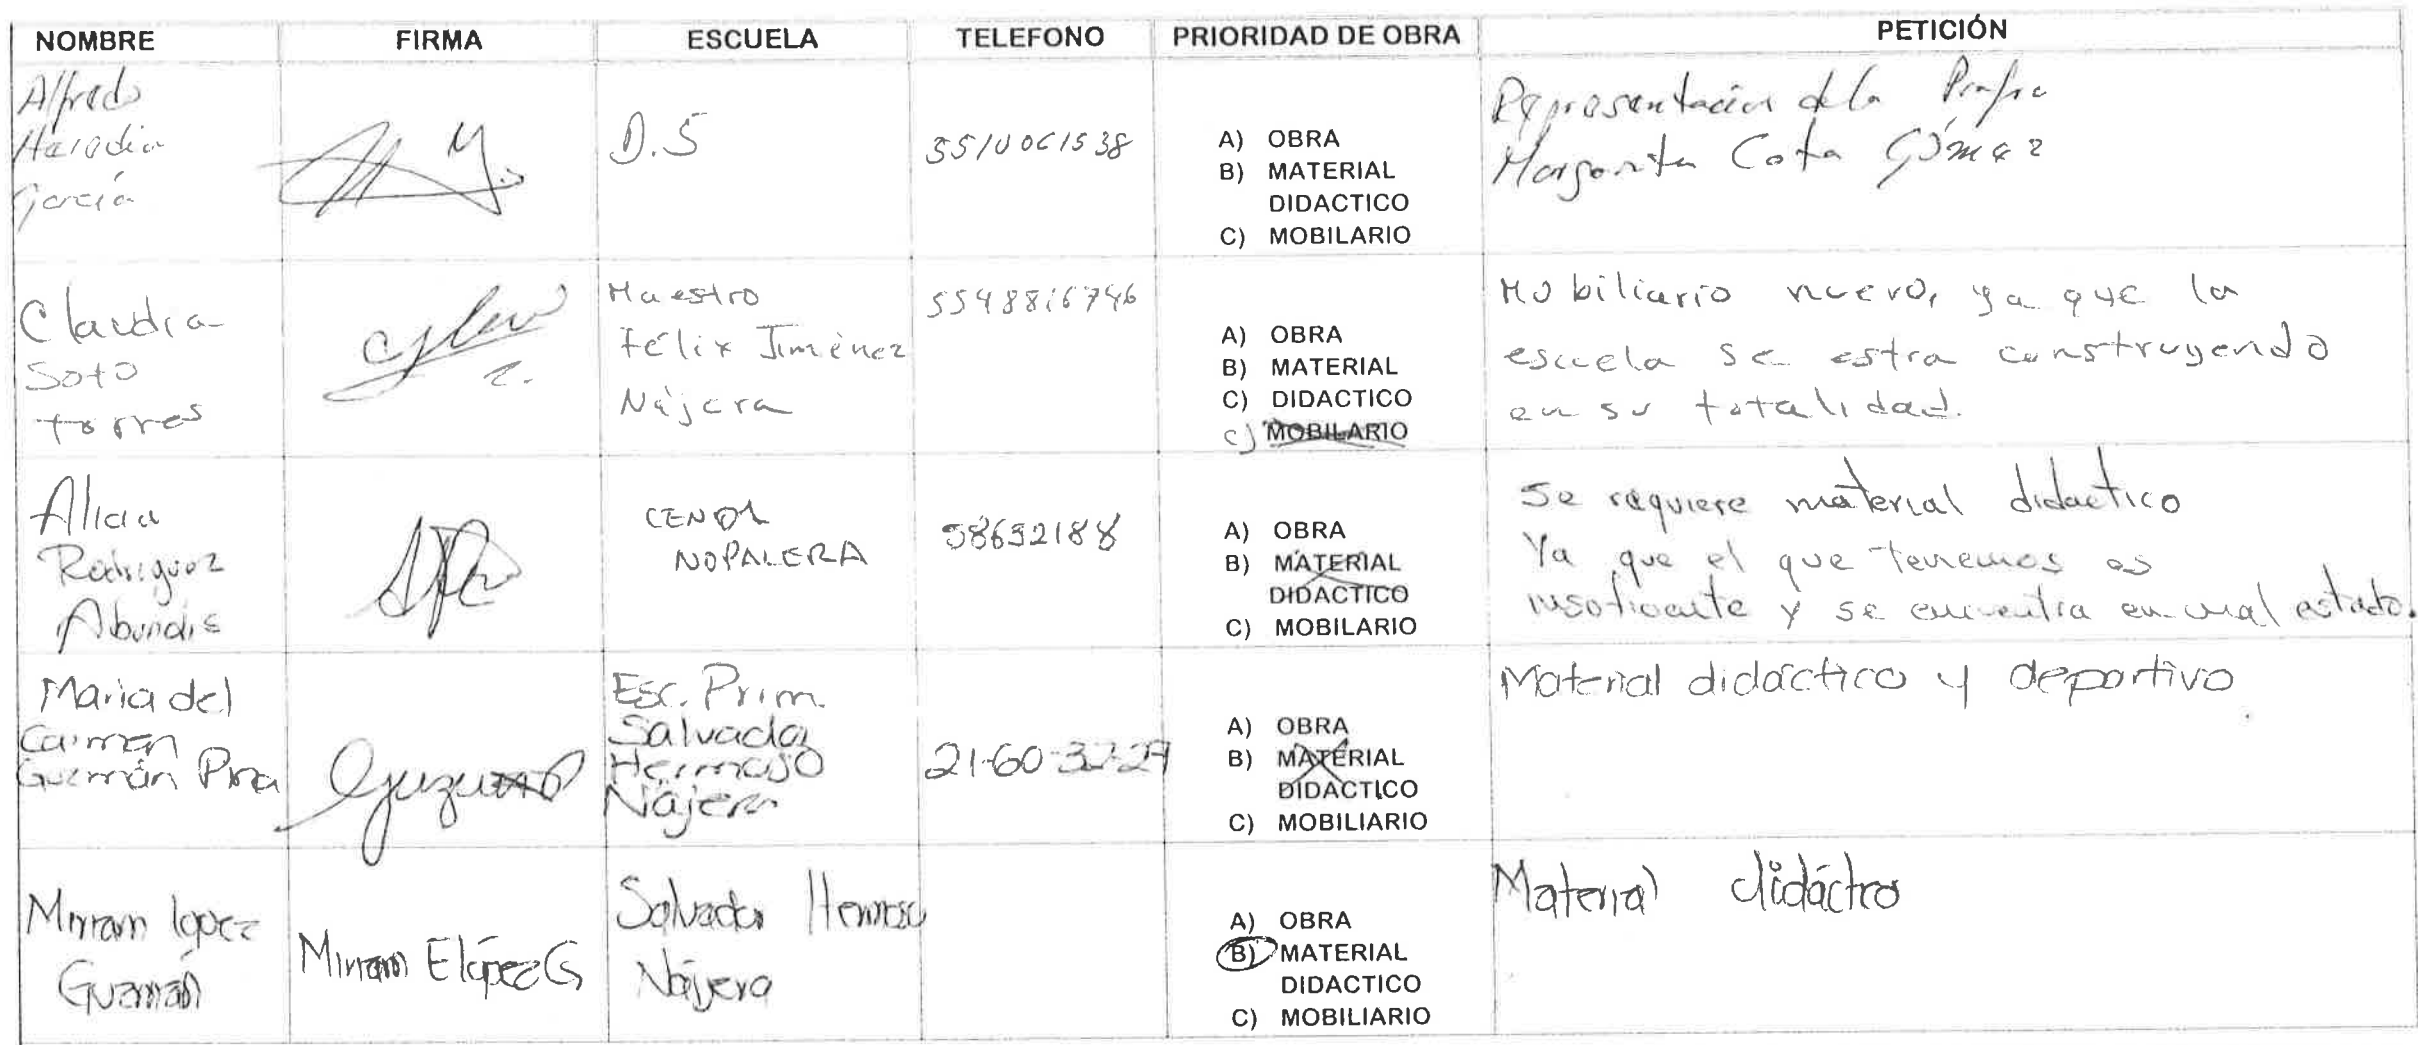 NOMBRE FIRMA ESCUELA TELEFONO PRIORIDAD DE OBRA PETICIÓN
Alfredo
Heredia
García
D.5
5510061538
A) OBRA
B) MATERIAL
DIDACTICO
C) MOBILARIO
Representación de la Profra
Margarita Cota Gómez
Claudia
Soto
torres
Maestro
Félix Jiménez
Nájera
5548816746
A) OBRA
B) MATERIAL
C) DIDACTICO
C) MOBILARIO
Mobiliario nuevo, ya que la
escuela se estra construyendo
en su totalidad.
Alicia
Rodriguez
Abundis
CENDI
NOPALERA
58652188
A) OBRA
B) MATERIAL
DIDACTICO
C) MOBILARIO
Se requiere material didactico
Ya que el que tenemos es
insoficiente y se encuentra en mal estado.
Maria del
Carmen
Guzmán
Esc. Prim.
Salvador
Hermoso
Nájera
21-60-32-29
A) OBRA
B) MATERIAL
DIDACTICO
C) MOBILIARIO
Material didáctico y deportivo
Miriam lopez
Guzmán
Miriam E lópez G
Salvador Hermoso
Nájera
A) OBRA
B) MATERIAL
DIDACTICO
C) MOBILIARIO
Material didáctico